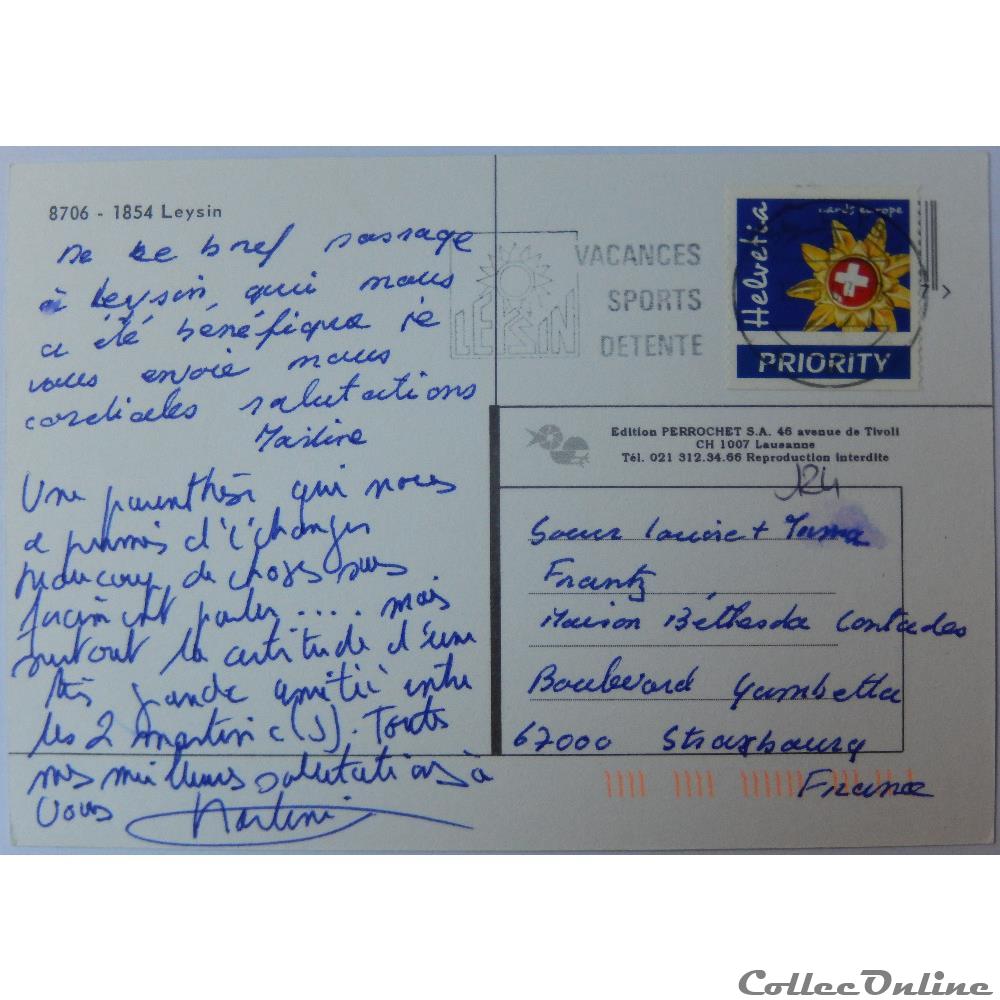 8706 - 1854 Leysin
De ce bref passage
à Leysin, qui nous
a été bénéfique je
vous envoie nous
cordiales salutations
Martine
Une parenthèse qui nous
a permis d'échanger
beaucoup de choses sans
forcément parler .... mais
surtout la certitude d'une
très grande amitié entre
les 2 martine(s). Toutes
mes meilleures salutations à
vous Martine
LEYSIN
VACANCES
SPORTS
DETENTE
Helvetia
PRIORITY
Edition PERROCHET S.A. 46 avenue de Tivoli
CH 1007 Lausanne
Tél. 021 312.34.66 Reproduction interdite
124
Soeur Louise +
Frantz
Maison Béthesda Contades
Boulevard Gambetta
67000 Strasbourg
France
CollecOnline